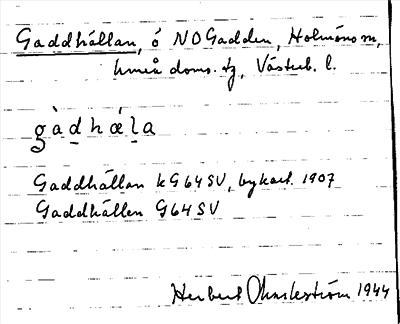 Gaddhällan, ö NO Gadden, Holmöns sn,
Umeå doms. tg, Västerb. l.
gàd̲hǽl̲a
Gaddhällan kG64SV, bykart. 1907
Gaddhällen G64SV
Herbert 1944